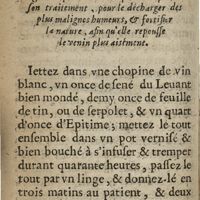 son traitement, pour le décharger des
plus malignes humeurs, & fortifier
la nature, afin qu'elle repousse
le venin plus aisément.
Iettez dans vne chopine de vin
blanc, vn once de sené du Leuant
bien mondé, demy once de feuille
de tin, ou de serpolet, & vn quart
d'once d'Epitime; mettez le tout
ensemble dans vn pot vernisé &
bien bouché à s'infuser & tremper
durant quarante heures, passez le
tout par vn linge, & donnez-lé en
trois matins au patient, & deux